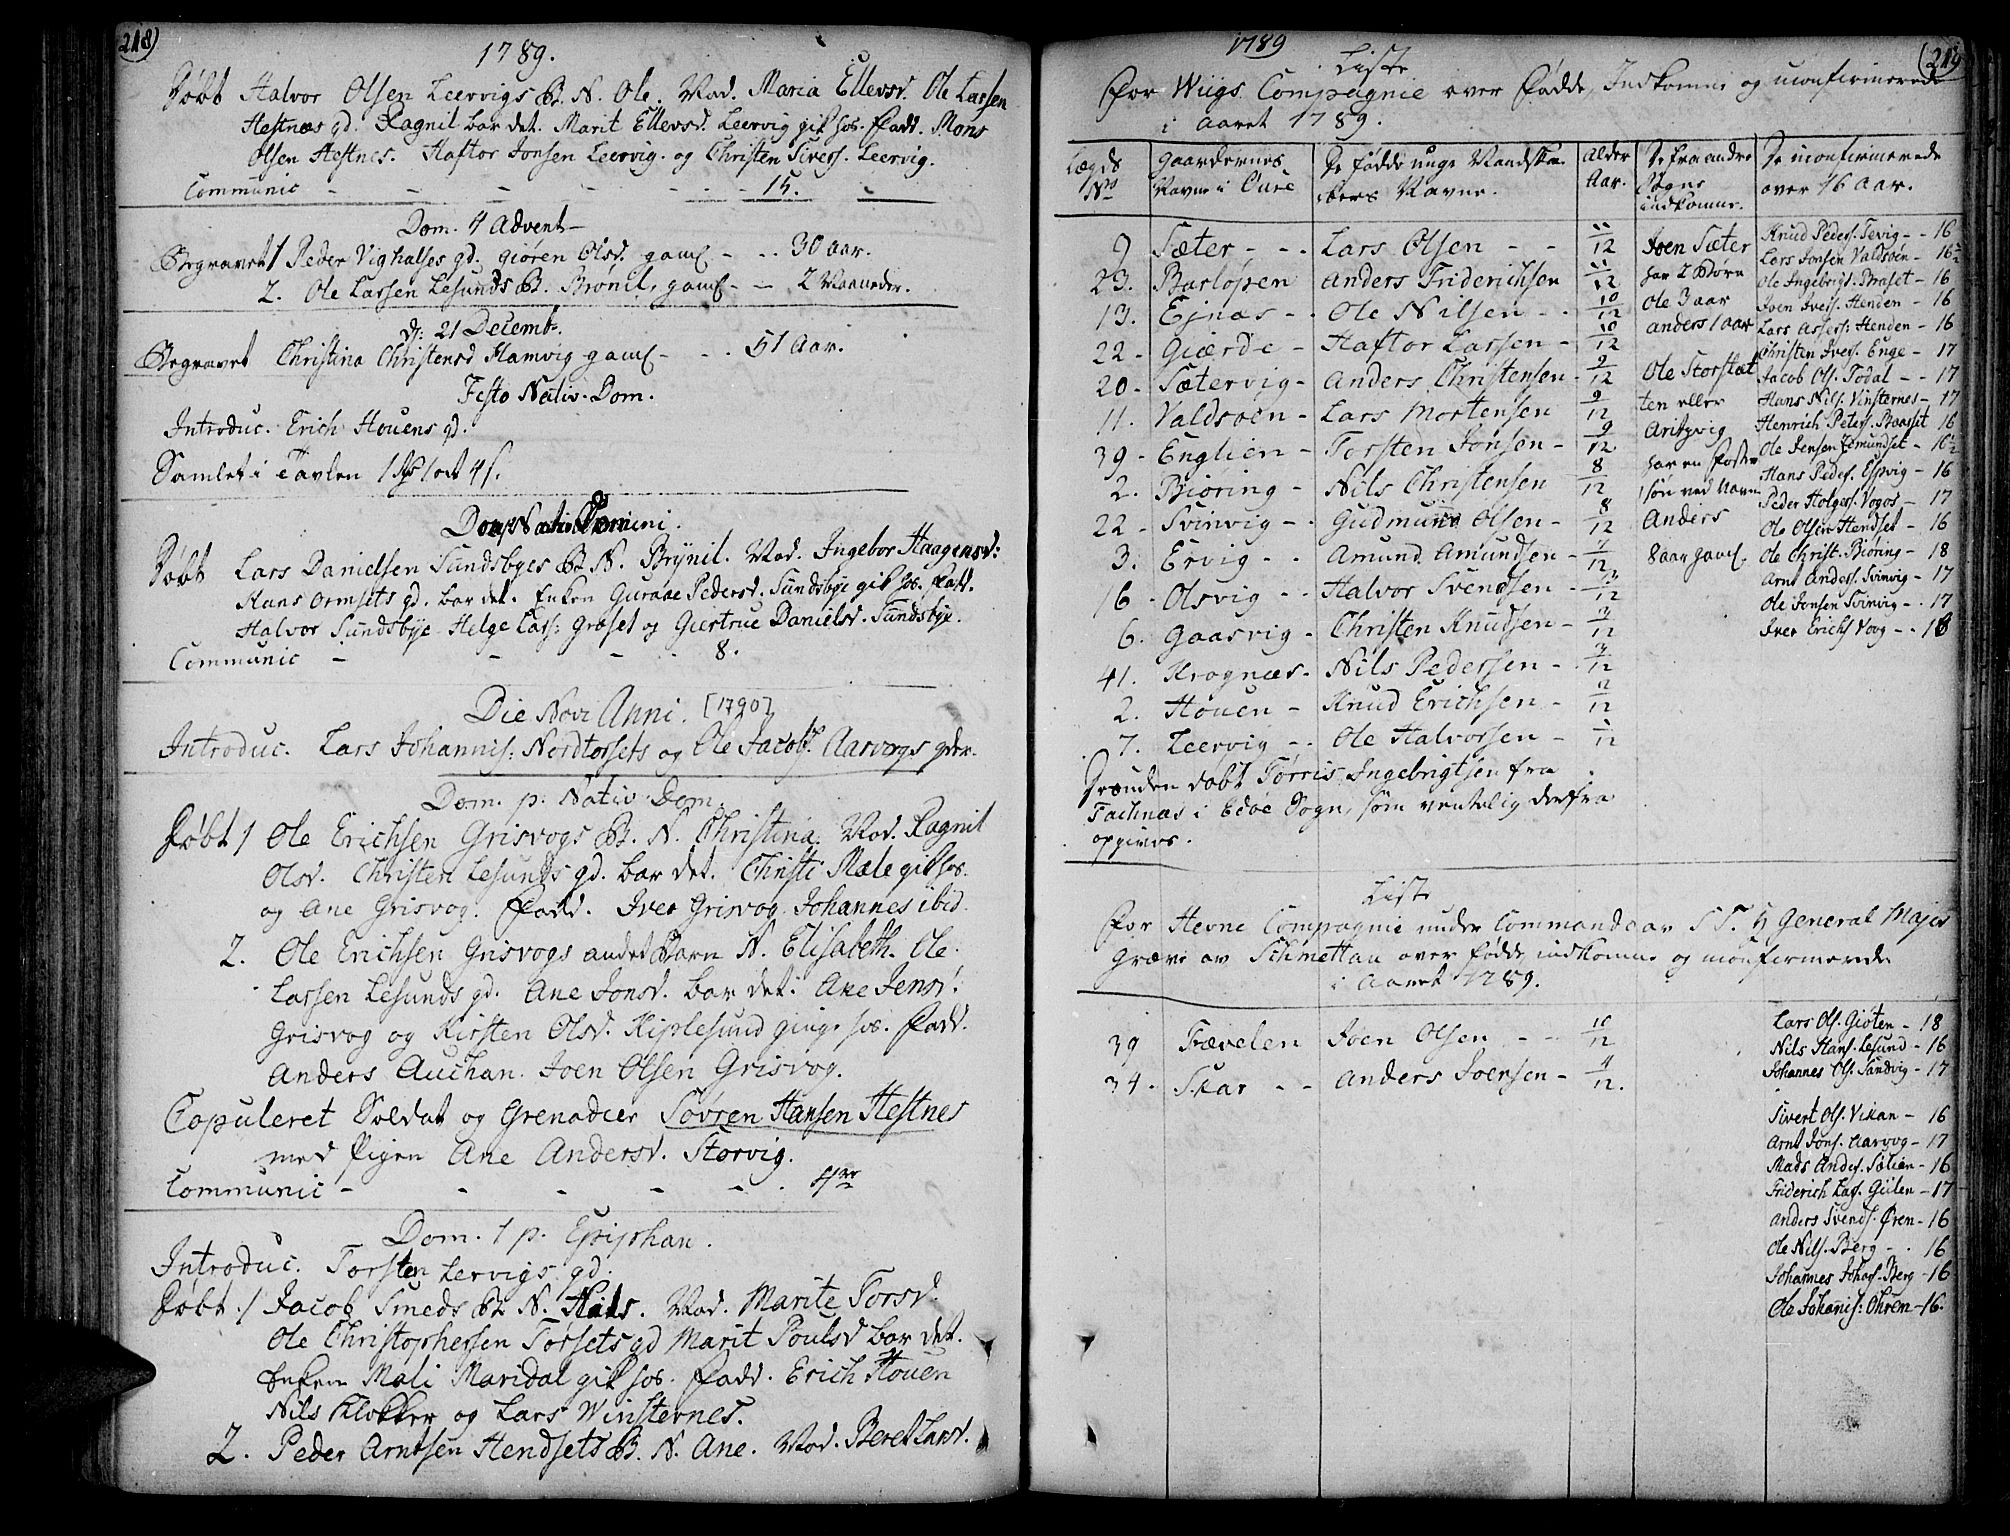 218)
1789.
Døbt Halvor Olsen Leervigs B. N. Ole. Mod. Maria Ellevsd. Ole Larsen
Hestnæs gd. Ragnil bar det. Marit Ellevsd. Leervig gik hos. Fadd. Mons
Olsen Hestnes. Haftor Jonsen Leervig. og Christen Sivers. Leervig.
Communic - - - - - - 15.
Dom. 4 Advent
Begravet 1 Peder Vighalses gd. Giøren Olsd. gaml - - 30 Aar.
2. Ole Larsen Lesunds B. Brønil, gaml - - 2 Maaneder.
d: 21 Decemb.
Begravet Christina Christensd Hamvig gaml - - 51 Aar.
Festo Nativ. Dom.
Introduc. Erich Houens gd.
Samlet i Tavlen 1 ort 4 s.
Nativ Domini.
Døbt Lars Danielsen Sundsbyes B. N. Brynil. Mod. Ingebor Haagensd:
Hans Ormsets gd. bar det. Enken Guraae Pedersd. Sundsbye gik hos. Fadd.
Halvor Sundsbye Helge Lars: Graset og Giertrue Danielsd. Sundsbye.
Communic - - - - 8.
Die Novi Anni. [1790]
Introduc. Lars Johannis: Nordtorsets og Ole Jacobs. Aarvogs gder.
Dom. p. Nativ. Dom.
Døbt 1 Ole Erichsen Grisvogs B. N. Christina. Mod. Ragnil
Olsd. Christen Lesunds gd. bar det. Christi Mæle gik hos.
og Ane Grisvog. Fadd. Iver Grisvog. Johannes ibid.
2. Ole Erichsen Grisvogs andet Barn N. Elisabeth. Ole
Larsen Lesunds gd. Ane Jonsd. bar det. Ane Jensd:
Grisvog og Kirsten Olsd. Kiplesund ginge hos. Fadd.
Anders Auchan. Joen Olsen Grisvog.
Copuleret Soldat og Grenadeer Søvren Hansen Hestnes
med Pigen Ane Andersd. Storvig.
Communic - - - - - 4re
Dom. 1 p. Epiphan.
Introduc. Torsten Lervigs gd.
Døbt. 1 Jacob Smeds B. N. Nils. Mod. Marite Torsd
Ole Christophersen Torsets gd Marit Poulsd bar det.
Enken Mali Maridal gik hos. Fadd. Erich Houen
Nils Klokker og Lars Winsternes.
2. Peder Arntsen Hendsets B. N. Ane. Mod. Beret Larsd.
1789
(219
Liste
For Wiigs Compagnie over Fødde, Indkomne og uconfirmerede
i Aaret 1789.
Lægds No | Gaardernes Navne i Øure | De fødde unge Mandskabers Navne. | Alder Aar. | De fra andre Sogne indkomne. | De uconfirmerede over 16 Aar.
9 Sæter - - Lars Olsen - - 11/12
23. Barløpen Anders Friderichsen 11/12
13. Ejnas - - Ole Nilsen - - 10/12
22 - Giærde - Haftor Larsen - 10/12
20 - Sætervig - Anders Christensen - 9/12
11. Valdsøen - Lars Mortensen 9/12
39 - Englien - Torsten Jonsen - 9/12
2. Biøring - Nils Christensen 8/12
22 - Svinvig - Gudmund Olsen - 8/12
3. Ervig - - Amund Amundsen - 7/12
16 - Olsvig - - Halvor Svendsen - /12
6. Gaasvig - Christen Knudsen - /12
41. Krognæs - Nils Pedersen - /12
2. Houen - Knud Erichsen - /12
7. Leervig - - Ole Halvorsen - /12
Joen Sæter
har 2 Børn
Ole 3 aar
anders 1 aar
Ole Storstæt
ten eller
Aritzvig
har en Foster
søn ved Navn
Anders
8 aar gaml.
Knud Peders. Sevig - - 16
Lars Jonsen Valdsøen - 16½
Ole Ingebrigd. Braset - 16
Joen Ivers. Henden - 16
Lars Assers: Henden - 16
Christen Ivers. Enge - 17
Jacob Ols. Todal - - 17
Hans Nils. Vinsternes - 17
Henrich Peters. Baasset 16
Ole Jensen Esmundset - 16½
Hans Peders. Espvig - 16
Peder Holgers. Vogos - 17
Ole Olsen Hendset - 16
Ole Christ. Biøring - 18
Arnt Anders. Svinvig - 17
Ole Jonsen Svinvig - - 17
Iver Erichs Voog - - 18
Desuden døbt Torris Ingebrigtsen fra
Tachnas i Edøe Sogn, som ventelig derfra
opgives.
Liste
For Hevne Compagnie under Commando av S. T. H General Major
Græve av Schmettau over fødde, indkomne og uconfirmerede
i Aaret 1789.
39 Trævelen Joen Olsen - - 10/12
34. Skar - - Anders Joensen - 4/12.
Lars Ols. Giøten - 18
Nils Hans. Lesund - 16
Johannes Ols. Sandvig - 17
Sivert Ols. Vikan - 16
Arnt Jons. Aarvog - 17
Mads Anders. Sølien - 16
Friderich Lars. Gulen - 17
Anders Svends. Øren - 16
Ole Nils. Berg - - 16
Johannes Johans. Berg - 16
Ole Johannis: Øhren - 16.